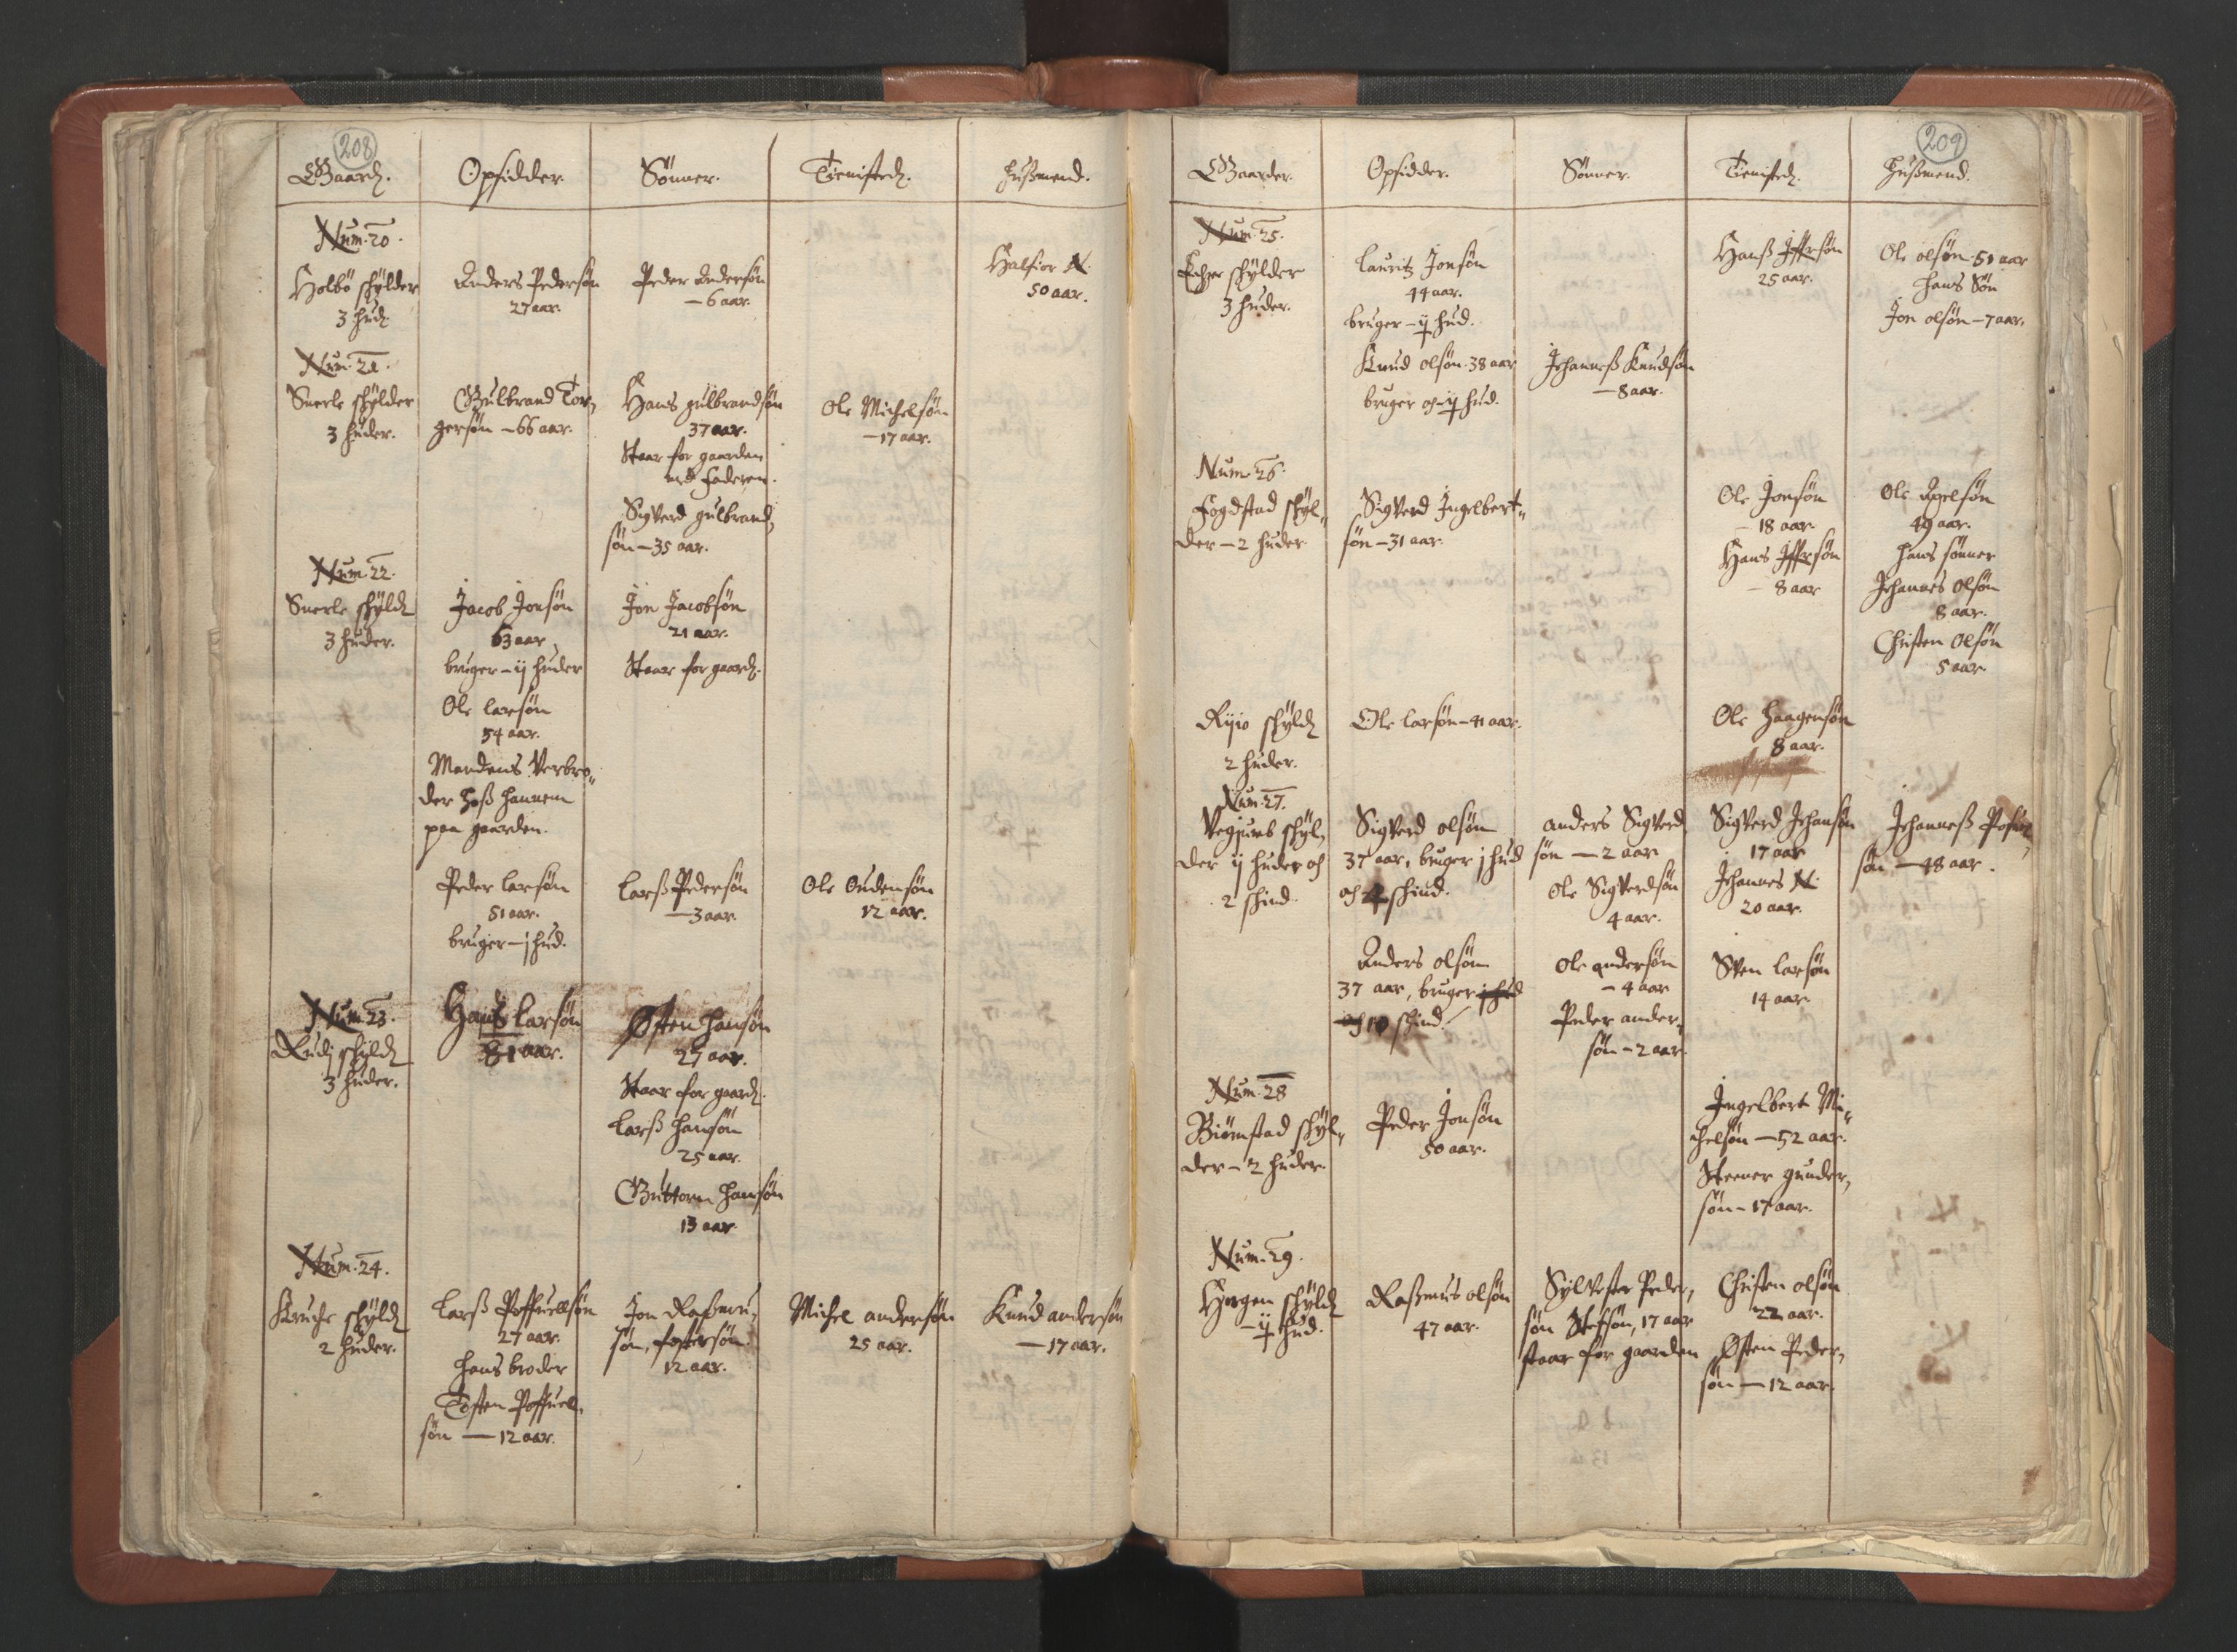 208
Gaard. Opsidder. Sönner. Tienisted. Husmend.
Num. 20.
Holbö schÿlder
3 hud.
Anders Pedersön
27 aar.
Peder Andersön
— 6 aar.
Halfior N.
50 aar.
Num. 21.
Snerle schÿlder
3 huder.
Gulbrand Tor,
gersön — 66 aar.
Hans gulbrandsön
37 aar.
staar for gaarden
med faderen.
Sigverd gulbrand,
sön — 35 aar.
Ole Michelsön
— 17 aar.
Num. 22.
Snerle schÿld
3 huder.
Jacob Jonsön
63 aar
bruger — ij huder
Ole larsön
54 aar.
Mandens Verbro„
der hoß hannem
paa gaarden.
Jon Jacobsön
21 aar.
staar for gaard.
Peder larsön
51 aar.
bruger — j hud.
Larß Pedersön
— 3 aar.
Ole Oudensön
12 aar.
Num. 23.
Rudj schÿld
3 huder.
Hans larsön
81 aar.
Østen Hansön
27 aar.
staar for gaard.
Larß hansön
25 aar.
Guttorm hansön
13 aar.
Num. 24.
Kruke schÿld
2 huder.
Larß Poffuelsön
27 aar.
hans broder
Tosten Poffuel,
sön — 12 aar.
Jon Raßmu,
sön, fostersön
12 aar.
Michel andersön
25 aar.
Knud andersön
— 17 aar.
209
Gaarder. Opsidder. Sönner. Tienisted. Husmend.
Num. 25.
schÿlder
3 huder.
Lauritz Jonsön
44 aar.
bruger — ij hud.
Knud olsön. 38 aar
bruger och ij hud.
Johannß Knudsön
— 8 aar.
Hanß Iffersön
25 aar.
Ole olsön. 51 aar
hans Sön
Jon olsön — 7 aar.
Num. 26.
Fogdstad schÿl„
der — 2 huder
Sigverd Ingelbert„
sön — 31 aar.
Ole Jonsön
— 18 aar.
Hans Iffersön
— 8 aar
Ole Axelsön
49 aar.
hans sönner
Johannes olsön
8 aar.
Christen Olsön
5 aar.
schÿld
2 huder.
Ole larsön — 41 aar.
Ole haagensön
8 aar.
Num. 27.
schÿl,
der ij huder och
2 skind.
Sigverd olsön
37 aar, bruger j hud
och 4 skind.
anders Sigverd
sön — 2 aar
Ole Sigverdsön
4 aar.
Sigverd Johansön
17 aar
Johannes N.
20 aar.
Johanneß
sön — 48 aar.
Anders olsön
37 aar, bruger j hud
och 10 skind.
Ole andersön
— 4 aar
Peder ander,
sön — 2 aar.
Sven larsön
14 aar.
Num. 28
Biörnstad schÿl„
der — 2 huder.
Peder Jonsön
50 aar.
Ingelbert Mi„
chelsön — 52 aar.
Steener gunder,
sön — 17 aar.
Num. 29.
Horgen schÿld
— ij hud.
Raßmus olsön
47 aar.
Sylvester Peder,
sön Stefsön, 17 aar
staar for gaarden
Christen olsön
22 aar.
Østen Peder,
sön — 12 aar.